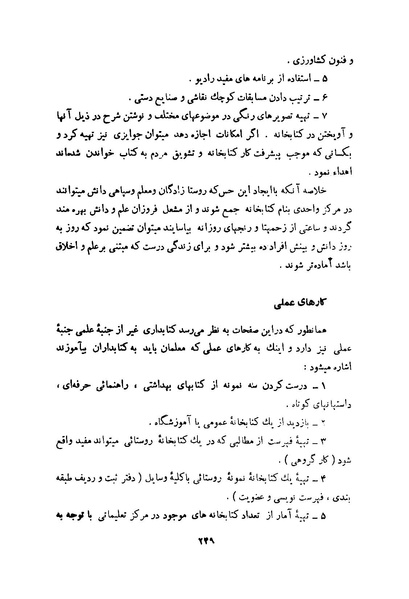 و فنون کشاورزی .
۵ ــ استفاده از برنامه های مفید رادیو .
۶ ــ ترتیب دادن مسابقات کوچك نقاشی و صنایع دستی .
۷ ــ تهیه تصویرهای رنگی در موضوعهای مختلف و نوشتن شرح در ذیل آنها
و آویختن در کتابخانه . اگر امکانات اجازه دهد میتوان جوایزی نیز تهیه کرد و
بکسانی که موجب پیشرفت کار کتابخانه و تشویق مردم به کتاب خواندن شده‌اند
اهداء نمود .
خلاصه آنکه باایجاد این حس‌که روستا زادگان ومعلم وسپاهی دانش میتوانند
در مرکز واحدی بنام کتابخانه جمع شوند و از مشعل فروزان علم و دانش بهره مند
گردند و ساعتی از زحمتها و رنجهای روزانه بیاسایند میتوان تضمین نمود که روز به
روز دانش و بینش افراد ده بیشتر شود و برای زندگی درست که مبتنی برعلم و اخلاق
باشد آماده‌تر شوند .
کارهای عملی
همانطور که دراین صفحات به نظر می‌رسد کتابداری غیر از جنبهٔ علمی جنبهٔ
عملی نیز دارد و اینك به کارهای عملی که معلمان باید به کتابداران بیآموزند
اشاره میشود :
۱ ــ درست کردن سه نمونه از کتابهای بهداشتی ، راهنمائی حرفه‌ای ،
داستانهای کوتاه .
۲ ــ بازدید از یك کتابخانهٔ عمومی یا آموزشگاه .
۳ ــ تهیهٔ فهرست از مطالبی که در یك کتابخانهٔ روستائی میتواند مفید واقع
شود ( کار گروهی ) .
۴ ــ تهیهٔ یك کتابخانهٔ نمونهٔ روستائی باکلیهٔ وسایل ( دفتر ثبت و ردیف طبقه
بندی ، فهرست نویسی و عضویت ) .
۵ ــ تهیهٔ آمار از تعداد کتابخانه های موجود در مرکز تعلیماتی با توجه به
۲۴۹